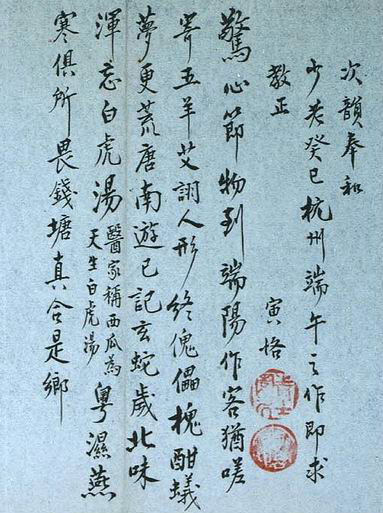 次韻奉和
少老癸巳杭州端午之作即求
教正
寅恪
驚心節物到端陽作客猶嗟
五羊艾詡人形終傀儡槐酣蟻
夢更荒唐南遊已記玄蛇歲北味
渾忘白虎湯醫家稱西瓜為天生白虎湯粵濕燕
寒俱所畏錢塘真合是鄉